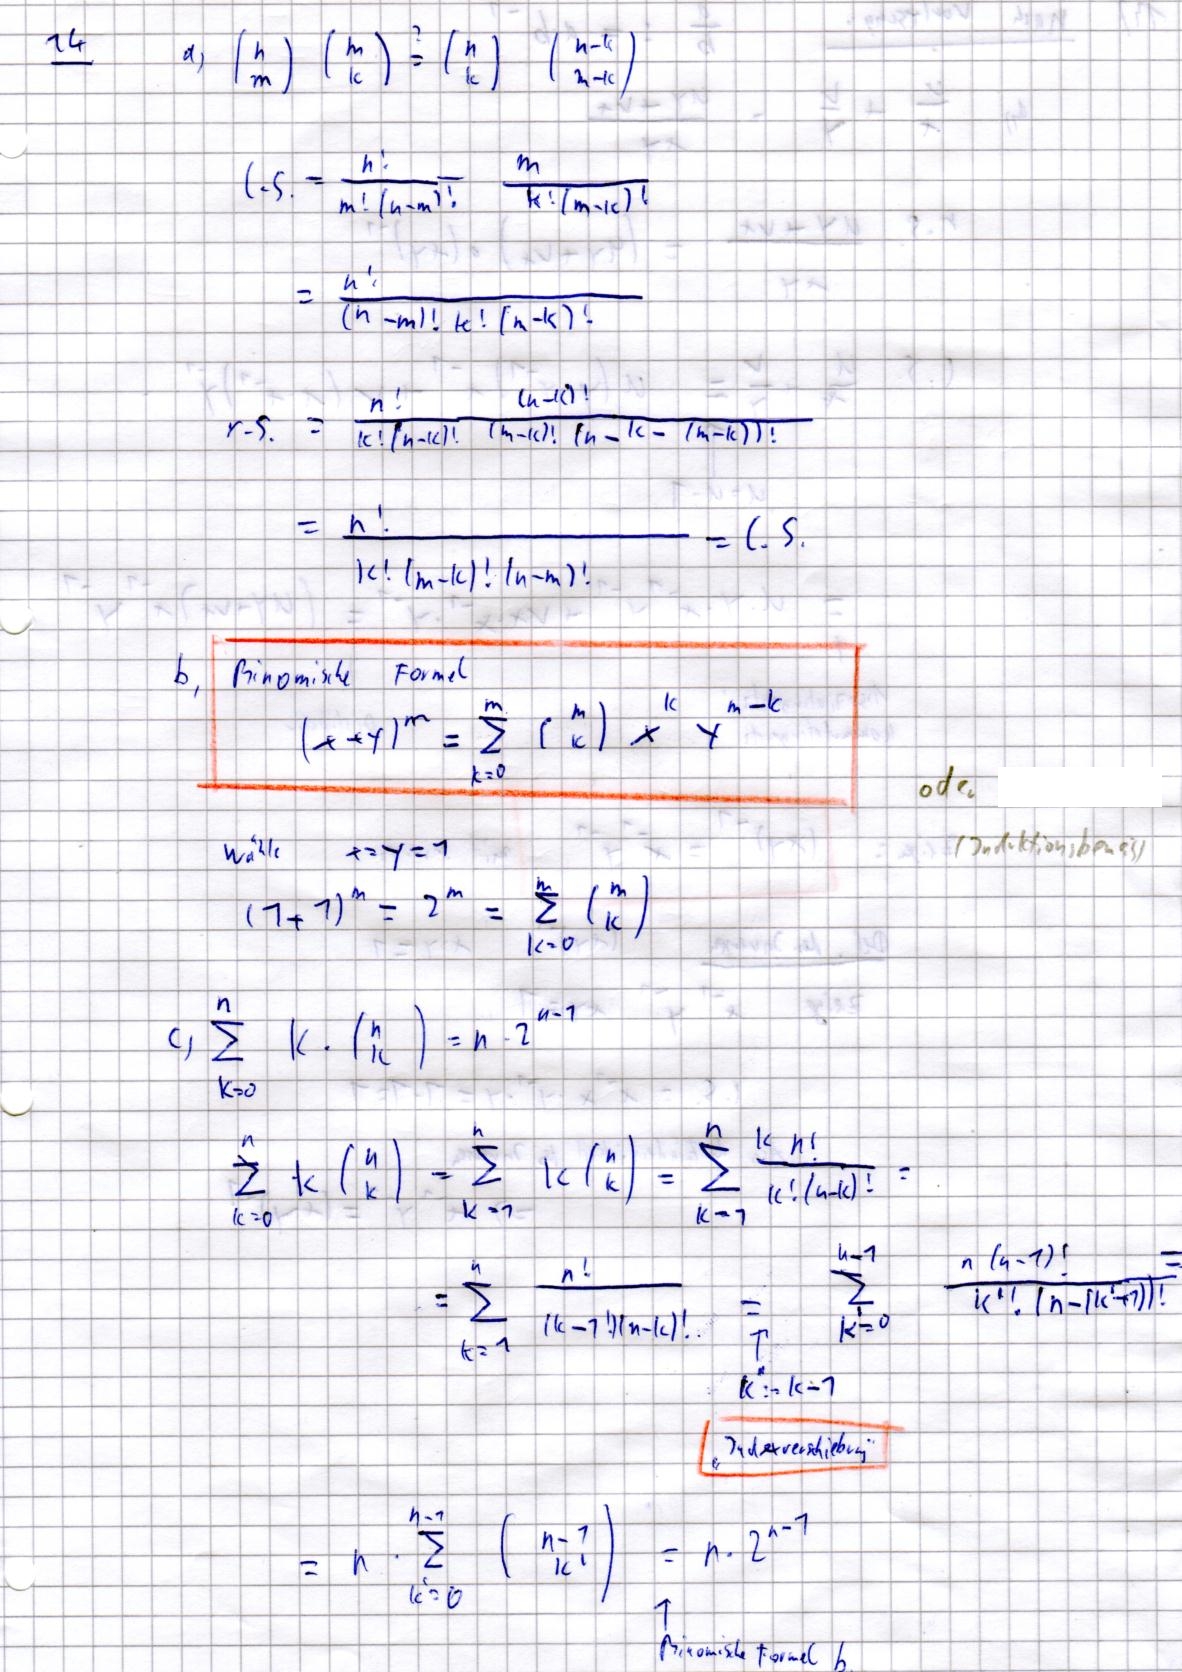 14 a) (n m) (m k) ?= (n k) (n-k m-k)
l.S. = n! / m! (n-m)! · m / k! (m-k)!
= n! / (n-m)! k! (m-k)!
r.S. = n! / k! (n-k)! · (n-k)! / (m-k)! (n-k-(m-k))!
= n! / k! (m-k)! (n-m)! = l.S.
b, Binomische Formel
(x+y)^m = Σ_{k=0}^{m} (m k) x^k y^{m-k}
oder
(Induktionsbeweis)
Wähle x=y=1
(1+1)^m = 2^m = Σ_{k=0}^{m} (m k)
c, Σ_{k=0}^{n} k · (n k) = n · 2^{n-1}
Σ_{k=0}^{n} k (n k) = Σ_{k=1}^{n} k (n k) = Σ_{k=1}^{n} k n! / k! (n-k)! =
= Σ_{k=1}^{n} n! / (k-1!)(n-k)! = Σ_{k'=0}^{n-1} n (n-1)! / k'! (n-(k'+1))! =
↑
k' := k-1
„Indexverschiebung"
= n · Σ_{k'=0}^{n-1} (n-1 k') = n · 2^{n-1}
↑
Binomische Formel b.